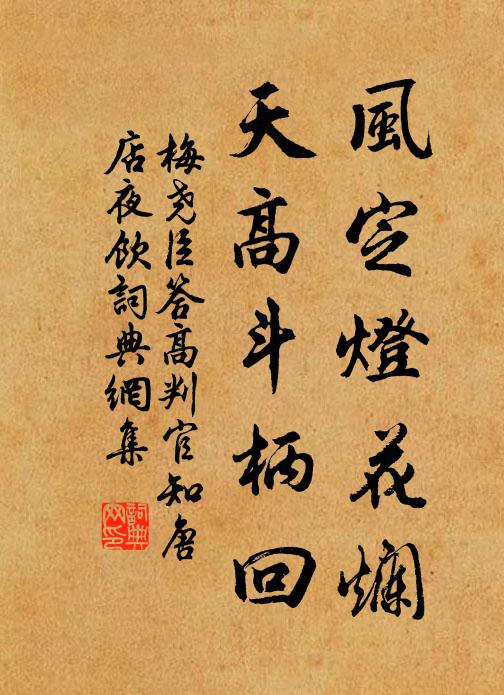 風定燈花爛
天高斗柄回
梅尧臣答高判官知唐
店夜飲詞典網集
詞典
网印